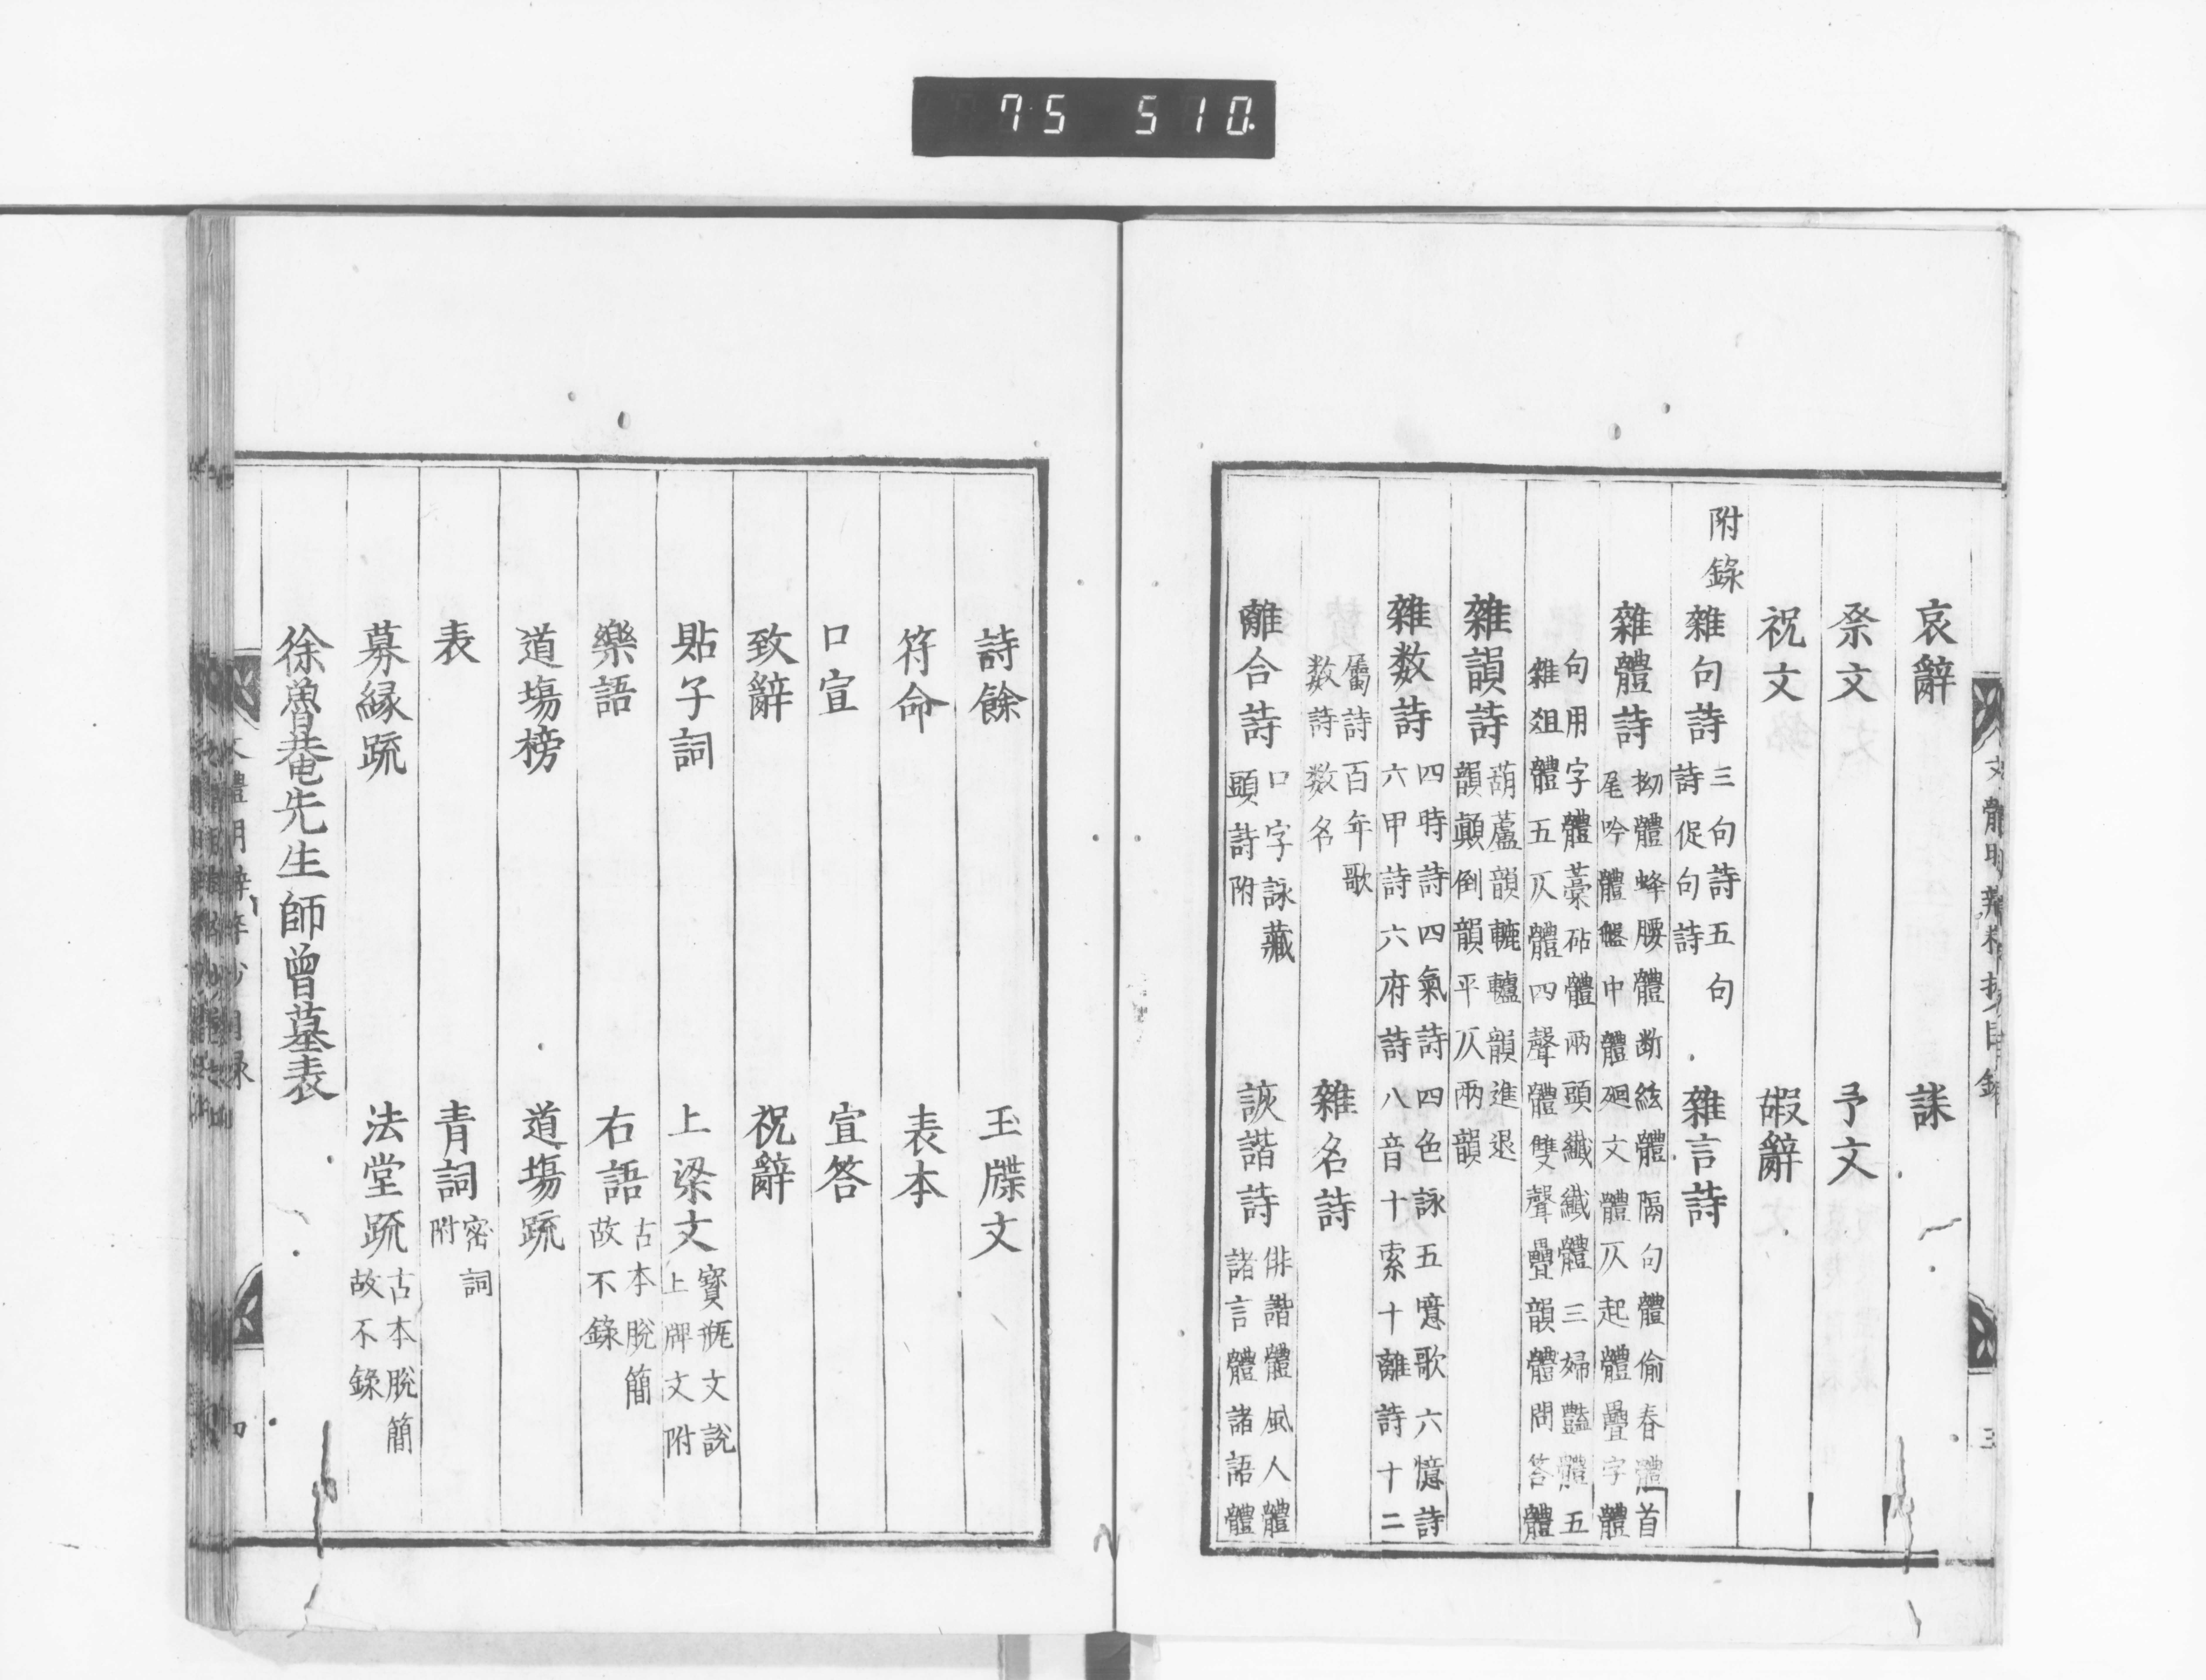 75 510.
哀辭 誄
祭文 予文
祝文 嘏辭
附錄
雜句詩 三句詩五句
詩促句詩 雜言詩
雜體詩 拗體蜂腰體断絃體隔句體偷春體首
尾吟體盤中體廻文體仄起體疊字體
句用字體藁砧體兩頭纖纖體三婦豔體五
雜俎體五仄體四聲體雙聲疊韻體問答體
雜韻詩 葫蘆韻轆轤韻進退
韻顛倒韻平仄兩韻
雜数詩 四時詩四氣詩四色詠五噫歌六憶詩
六甲詩六府詩八音十索十離詩十二
屬詩百年歌
数詩数名 雜名詩
離合詩 口字詠藏
頭詩附 詼諧詩 俳諧體風人體
諸言體諸語體
文體明辨粹抄目錄 三
詩餘 玉牒文
符命 表本
口宣 宣答
致辭 祝辭
貼子詞 上梁文 寶瓶文說
上牌文附
樂語 右語 古本脫簡
故不錄
道塲榜 道塲疏
表 青詞 密詞
附
募緣疏 法堂疏 古本脫簡
故不錄
徐魯菴先生師曾墓表
體明辨粹抄目錄 四